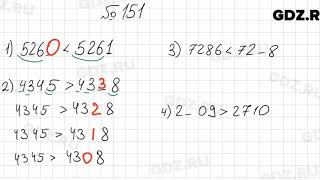 № 151
GDZ.RU
1) 5260 < 5261
2) 4345 > 4338
4345 > 4328
4345 > 4318
4345 > 4308
3) 7286 < 72_8
4) 2_09 > 2710